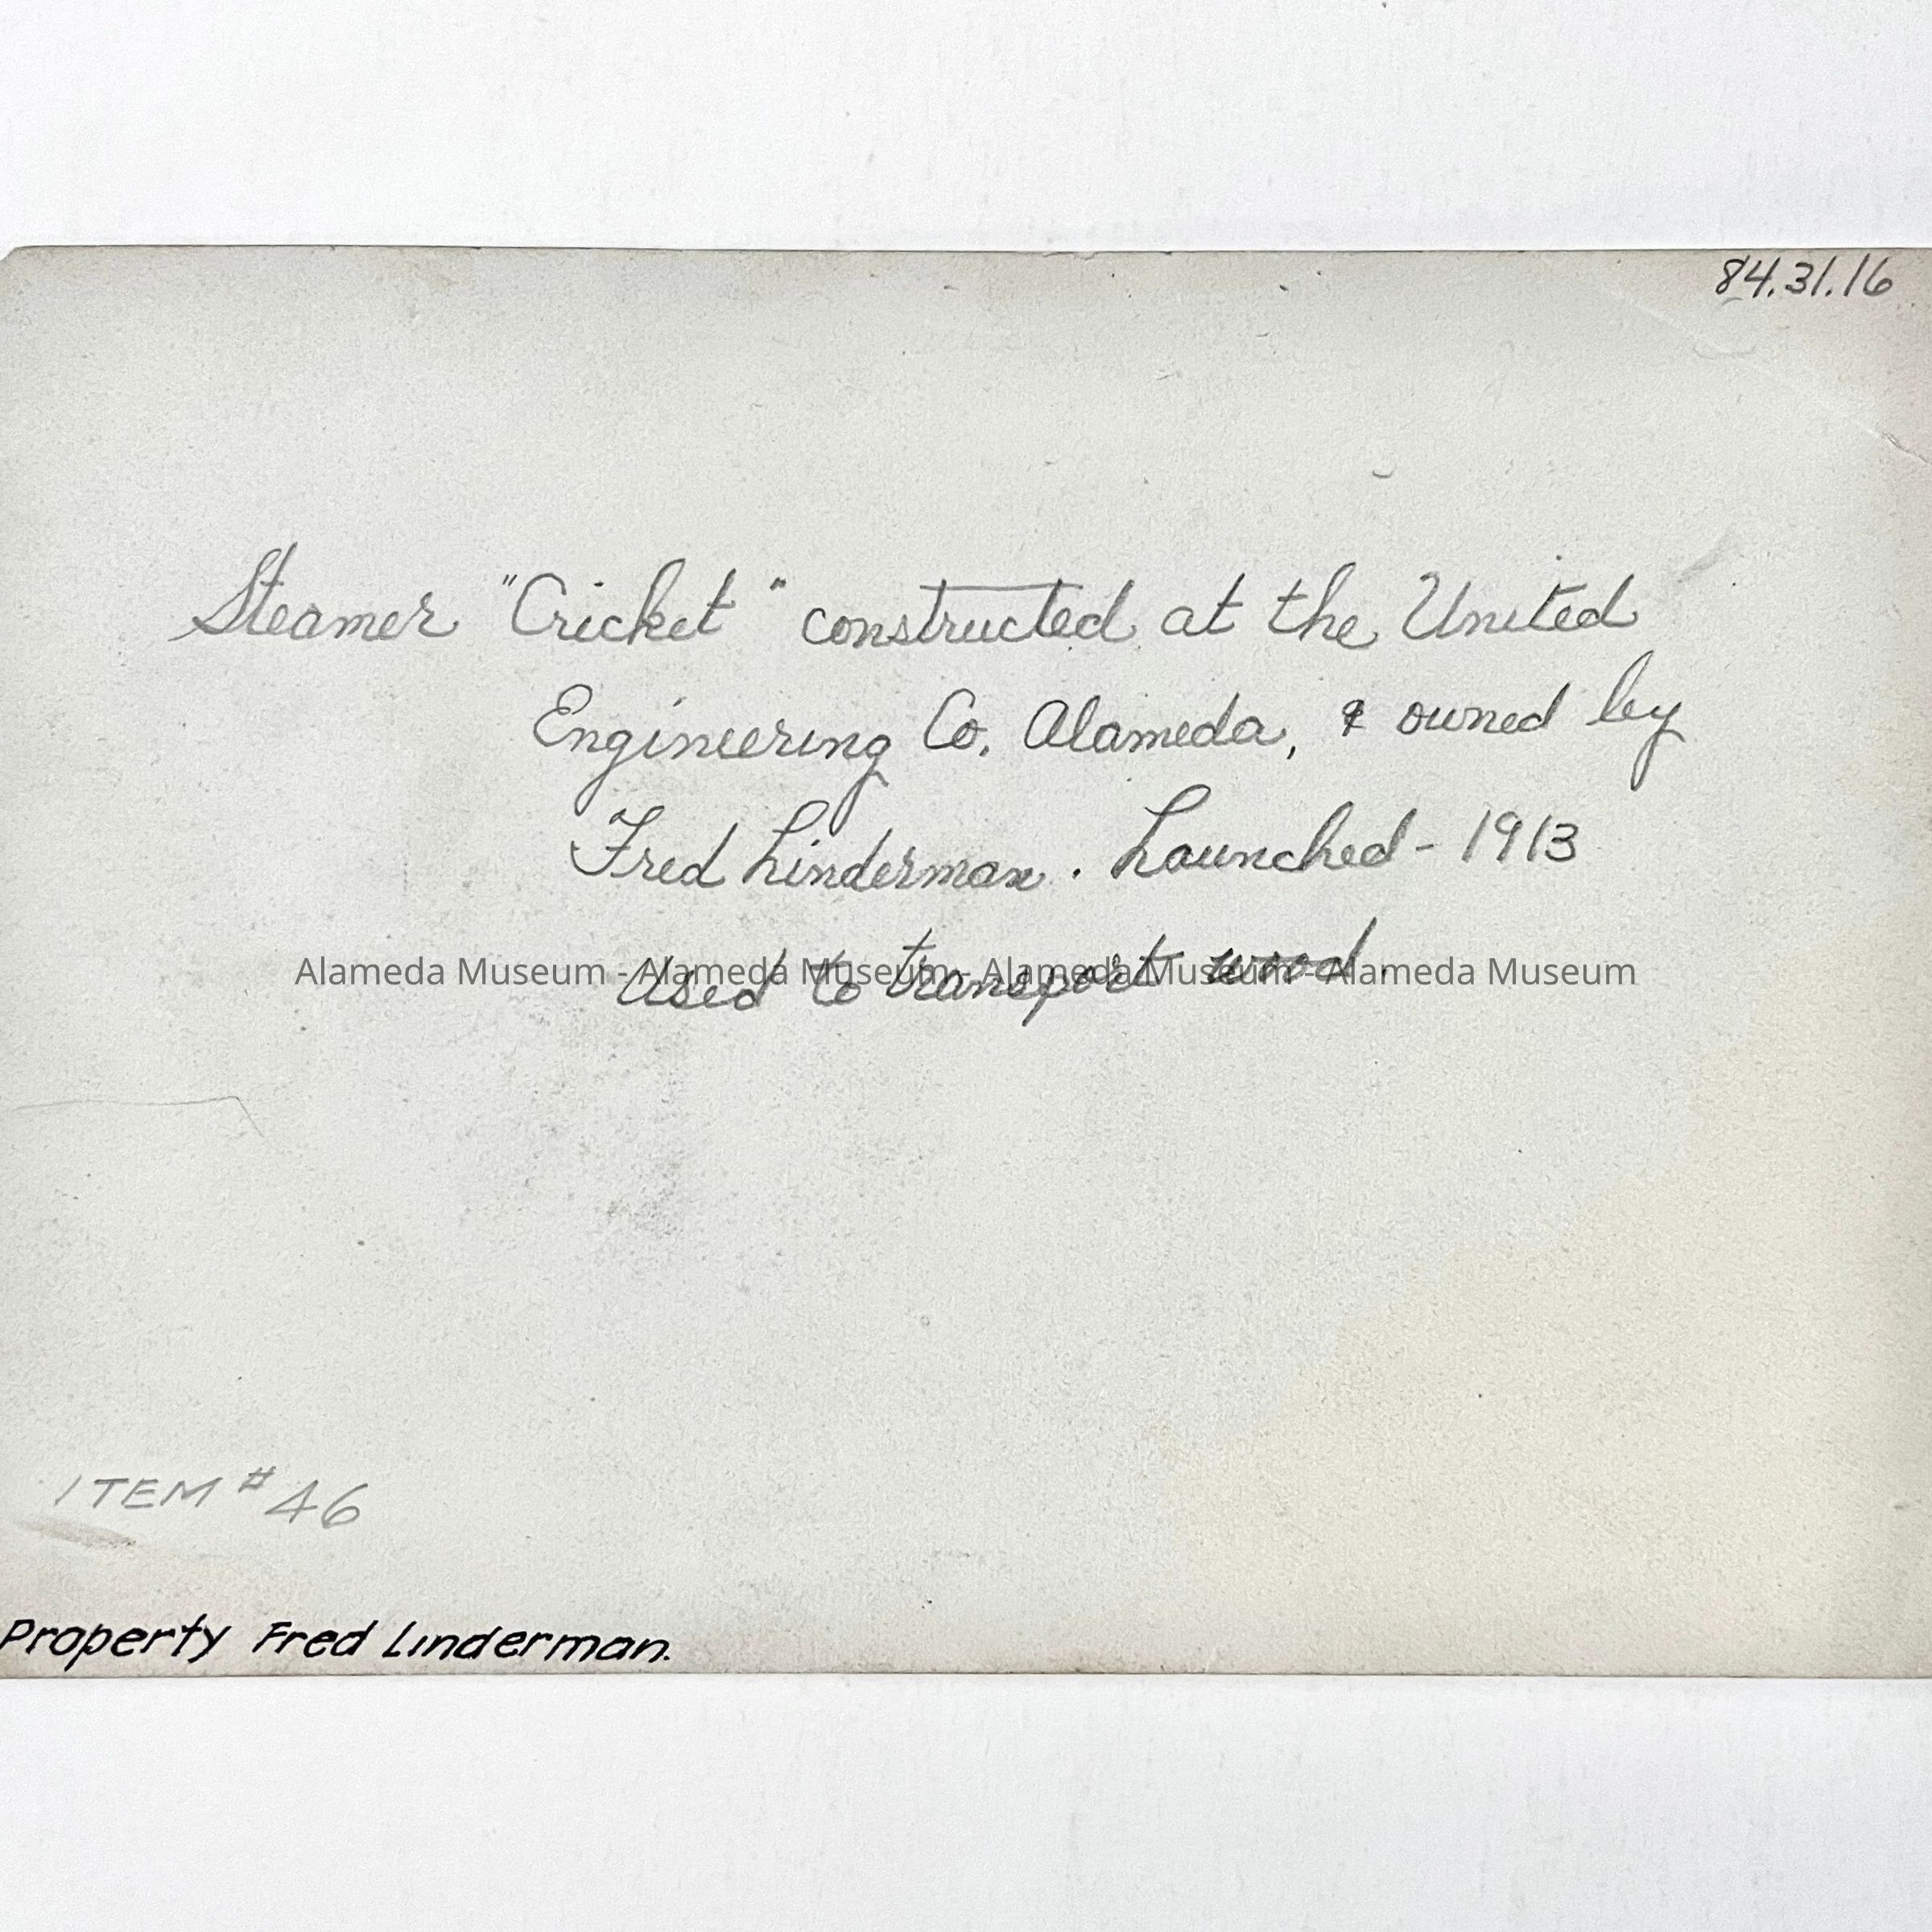 84.31.16
Steamer "Cricket" constructed at the United
Engineering Co. Alameda, & owned by
Fred Linderman. Launched - 1913
Used to transport wood.
Alameda Museum - Alameda Museum - Alameda Museum - Alameda Museum
ITEM # 46
Property Fred Linderman.